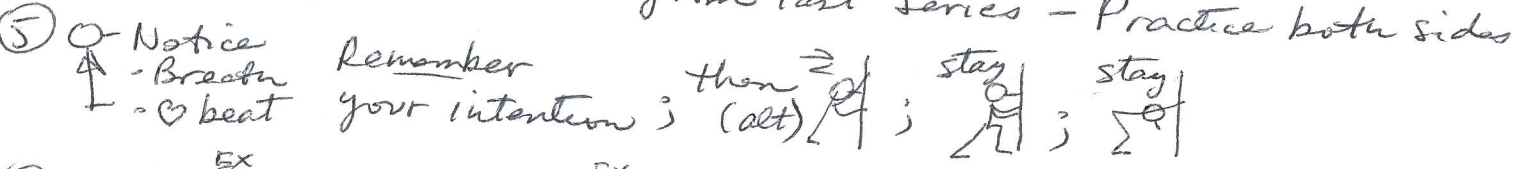 last series - Practice both sides
⑤ - Notice
- Breath
- ♡ beat
Remember
your intention ; then
(alt) ; stay ; stay
5X